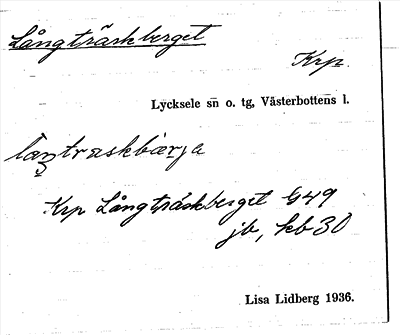 Långträskberget
Krp.
Lycksele sn o. tg, Västerbottens l.
Krp Långträskberget G49
jb, kb 30
Lisa Lidberg 1936.